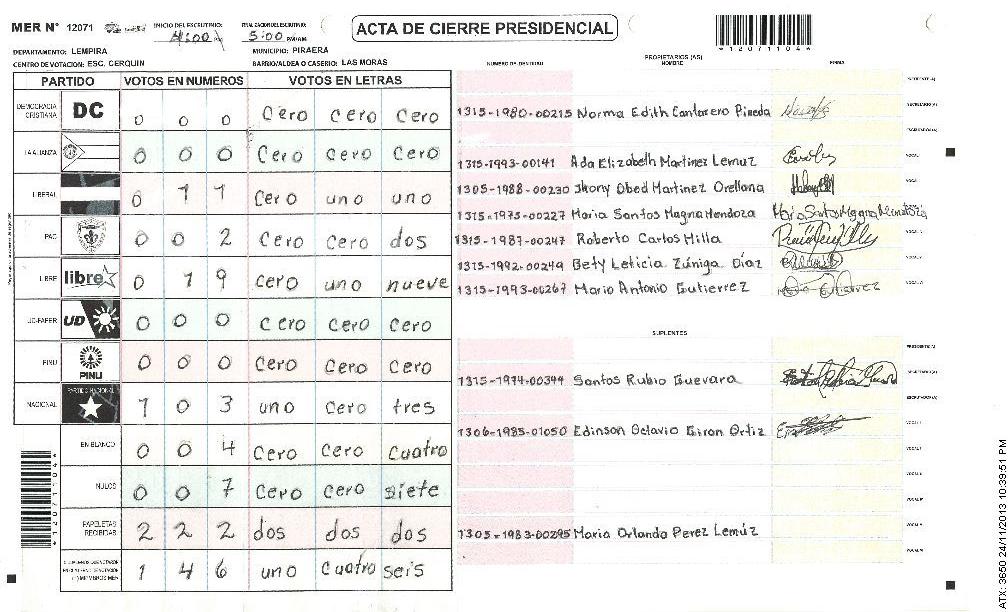 MER N° 12071
INICIO DEL ESCRUTINIO: 4:00 P
FINALIZACION DEL ESCRUTINIO: 5:00 PM/AM
ACTA DE CIERRE PRESIDENCIAL
*12071104*
DEPARTAMENTO: LEMPIRA MUNICIPIO: PIRAERA
CENTRO DE VOTACION: ESC. CERQUIN BARRIO/ALDEA O CASERIO: LAS MORAS
PARTIDO VOTOS EN NUMEROS VOTOS EN LETRAS
DEMOCRACIA CRISTIANA DC 0 0 0 Cero cero cero
LA ALIANZA 0 0 0 Cero Cero Cero
LIBERAL 0 1 1 Cero uno uno
PAC 0 0 2 Cero Cero dos
LIBRE libre 0 1 9 cero uno nueve
UD-FAPER UD 0 0 0 cero Cero Cero
PINU PINU 0 0 0 Cero Cero Cero
NACIONAL PARTIDO NACIONAL 1 0 3 uno Cero tres
EN BLANCO 0 0 4 Cero Cero Cuatro
NULOS 0 0 7 Cero Cero Siete
PAPELETAS RECIBIDAS 2 2 2 dos dos dos
1 4 6 uno Cuatro seis
*12071104*
NUMERO DE IDENTIDAD PROPIETARIOS (AS) NOMBRE FIRMA
PRESIDENTE(A)
1315-1980-00215 Norma Edith Cantarero Pineda SECRETARIO(A)
ESCRUTADOR(A)
1315-1993-00141 Ada Elizabeth Martinez Lemuz VOCAL I
1305-1988-00230 Jhony Obed Martinez Orellana
1315-1975-00227 Maria Santos Magna Mendoza
1315-1987-00247 Roberto Carlos Milla
1315-1992-00249 Bety Leticia Zúniga Díaz
1315-1993-00267 Mario Antonio Gutierrez
SUPLENTES
PRESIDENTE(A)
1315-1974-00344 Santos Rubio Guevara SECRETARIO(A)
ESCRUTADOR(A)
1306-1985-01050 Edinson Octavio Giron Ortiz VOCAL I
1305-1983-00295 Maria Orlanda Perez Lemúz
ATX: 3650 24/11/2013 10:39:51 PM